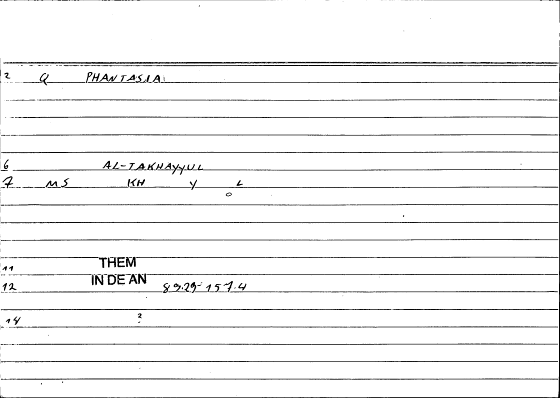 2 Q PHANTASIA
6 AL-TAKHAYYUL
7 MS KH Y L
11 THEM
12 IN DE AN 89.29-157.4
14 2